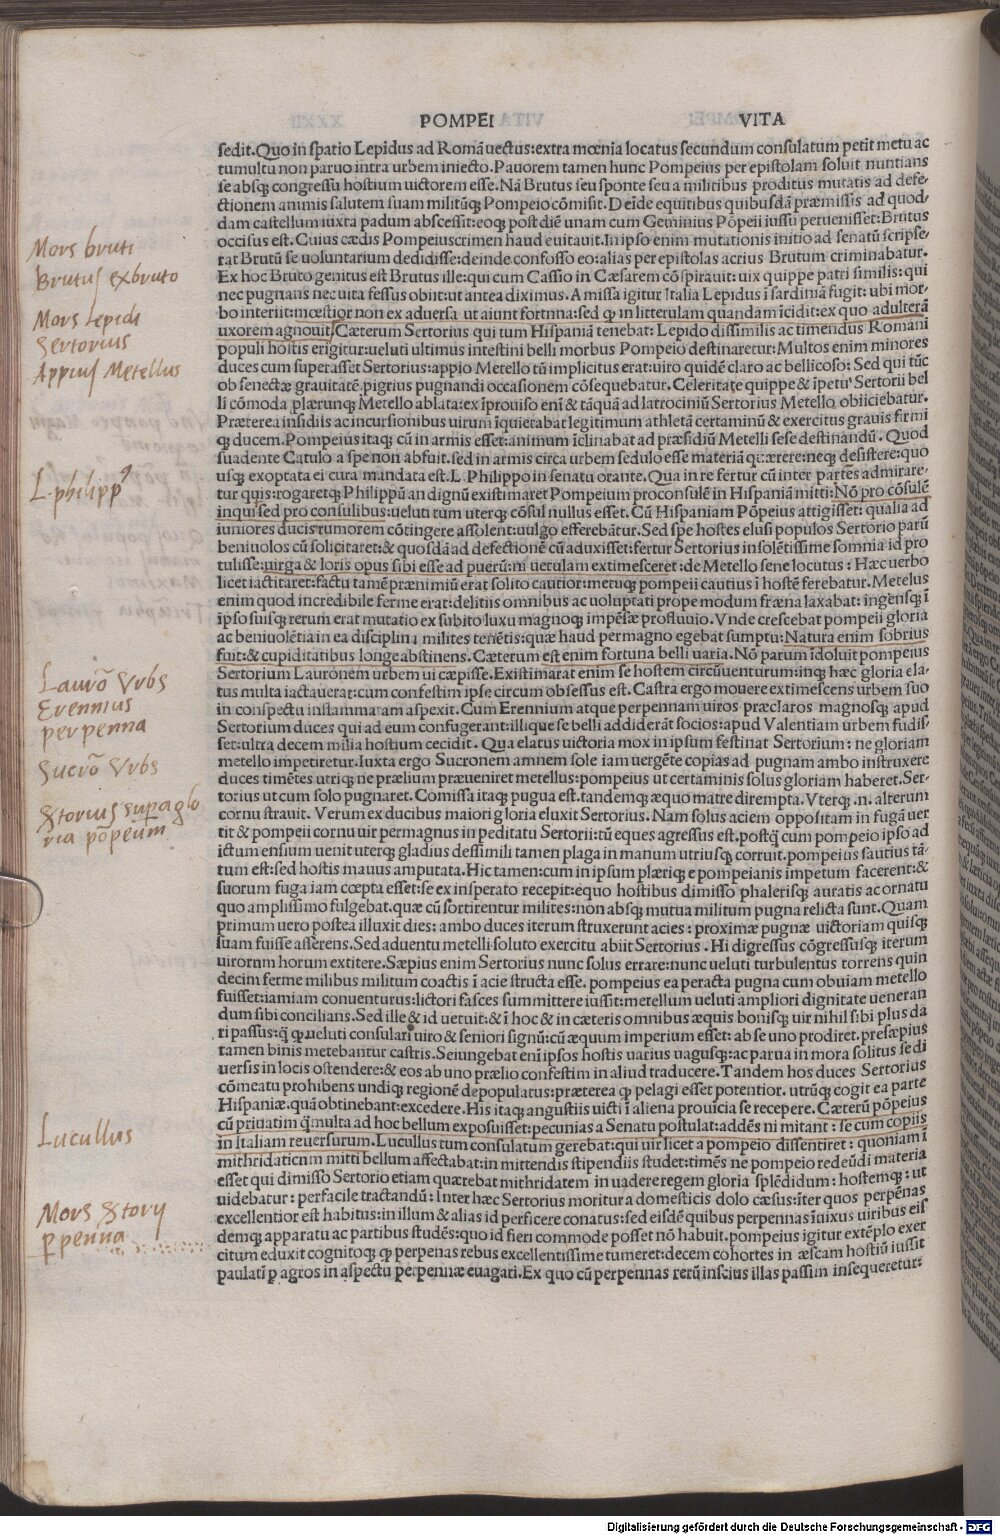 POMPEI VITA
sedit.Quo in spatio Lepidus ad Romã uectus:extra mœnia locatus secundum consulatum petit metu ac
tumultu non paruo intra urbem iniecto.Pauorem tamen hunc Pompeius per epistolam soluit nuntians
se absq; congressu hostium uictorem esse.Nã Brutus seu sponte seu a militibus proditus mutatis ad defe-
ctionem animis salutem suam militũq; Pompeio cõmisit.Deĩde equitibus quibusdã præmissis ad quod-
dam castellum iuxta padum abscessit:eoq; post diẽ unam cum Geminius Põpeii iussu peruenisset:Brutus
occisus est.Cuius cædis Pompeius crimen haud euitauit.In ipso enim mutationis initio ad senatũ scripse-
rat Brutũ se uoluntarium dedidisse:deinde confosso eo:alias per epistolas acrius Brutum criminabatur.
Ex hoc Bruto genitus est Brutus ille:qui cum Cassio in Cæsarem cõspirauit:uix quippe patri similis:qui
nec pugnans nec uita fessus obiit:ut antea diximus.Amissa igitur Italia Lepidus ĩ sardiniã fugit:ubi mor-
bo interiit:mœstior non ex aduersa ut aiunt fortnna:sed ꝙ in litterulam quandam ĩcidit:ex quo adulterã
uxorem agnouit.Cæterum Sertorius qui tum Hispaniã tenebat:Lepido dissimilis ac timendus Romani
populi hostis erigitur:ueluti ultimus intestini belli morbus Pompeio destinaretur:Multos enim minores
duces cum superasset Sertorius:appio Metello tũ implicitus erat:uiro quidẽ claro ac bellicoso: Sed qui tũc
ob senectæ grauitatẽ.pigrius pugnandi occasionem cõsequebatur.Celeritate quippe & ĩpetu' Sertorii bel
li cõmoda plærunq; Metello ablata:ex ĩprouiso enĩ & tãquã ad latrociniũ Sertorius Metello obiiciebatur.
Præterea insidiis ac incursionibus uirum ĩquietabat legitimum athletã certaminũ & exercitus grauis firmi
q; ducem.Pompeius itaq; cũ in armis esset:animum ĩclinabat ad præsidiũ Metelli sese destinandũ. Quod
suadente Catulo a spe non abfuit.sed in armis circa urbem sedulo esse materiã quærere:neq; desistere:quo
usq; exoptata ei cura mandata est.L.Philippo in senatu orante.Qua in re fertur cũ inter partes admirare-
tur quis:rogaretq; Philippũ an dignũ existimaret Pompeium proconsulẽ in Hispaniã mitti:Nõ pro cõsulẽ
inqui sed pro consulibus:ueluti tum uterq; cõsul nullus esset.Cũ Hispaniam Põpeius attigisset:qualia ad
iuniores ducis rumorem cõtingere assolent:uulgo efferebãtur.Sed spe hostes elusi populos Sertorio parũ
beniuolos cũ solicitaret:& quosdã ad defectionẽ cũ aduxisset:fertur Sertorius insolẽtissime somnia id pro
tulisse:uirga & loris opus sibi esse ad puerũ:ni uetulam extimesceret:de Metello sene locutus:Hæc uerbo
licet iactitaret:factu tamẽ præ nimiũ erat solito cautior:metuq; pompeii cautius ĩ hostẽ ferebatur.Metelus
enim quod incredibile ferme erat:delitiis omnibus ac uoluptati prope modum fræna laxabat:ingensq; ĩ
ipso suisq; rerum erat mutatio ex subito luxu magnoq; impẽsæ profluuio.Vnde crescebat pompeii gloria
ac beniuolẽtia in ea disciplina milites teriẽtis:quæ haud permagno egebat sumptu:Natura enim sobrius
fuit:& cupiditatibus longe abstinens.Cæterum est enim fortuna belli uaria.Nõ parum ĩdoluit pompeius
Sertorium Lauronem urbem ui cæpisse.Existimarat enim se hostem circũuenturum:inq; hæc gloria ela-
tus multa iactauerat:cum confestim ipse circum obsessus est.Castra ergo mouere extimescens urbem suo
in conspectu inflammatam aspexit.Cum Erennium atque perpennam uiros præclaros magnosq; apud
Sertorium duces qui ad eum confugerant:illique se belli addiderãt socios:apud Valentiam urbem fudis-
set:ultra decem milia hostium cecidit. Qua elatus uictoria mox in ipsum festinat Sertorium: ne gloriam
metello impetiretur.Iuxta ergo Sucronem amnem sole iam uergẽte copias ad pugnam ambo instruxere
duces timẽtes utriq; ne prælium præueniret metellus:pompeius ut certaminis solus gloriam haberet.Ser-
torius ut cum solo pugnaret.Comissa itaq; pugua est.tandemq; æquo matre dirempta.Vterq; .n. alterum
cornu strauit. Verum ex ducibus maiori gloria eluxit Sertorius.Nam solus aciem oppositam in fugã uer
tit & pompeii cornu uir permagnus in peditatu Sertorii:tũ eques agressus est.postq̃ cum pompeio ipso ad
ictum ensium uenit uterq; gladius dessimili tamen plaga in manum utriusq; corruit.pompeius sautius tã-
tum est:sed hostis mauus amputata.Hic tamen:cum in ipsum plæriq; e pompeianis impetum facerent:&
suorum fuga iam cœpta esset:se ex insperato recepit:equo hostibus dimisso phalerisq; auratis ac ornatu
quo amplissimo fulgebat.quæ cũ sortirentur milites:non absq; mutua militum pugna relicta sunt.Quam
primum uero postea illuxit dies: ambo duces iterum struxerunt acies: proximæ pugnæ uictoriam quisq;
suam fuisse asserens.Sed aduentu metelli soluto exercitu abiit Sertorius. Hi digressus cõgressusq; iterum
uirornm horum extitere.Sæpius enim Sertorius nunc solus errare:nunc ueluti turbulentus torrens quin
decim ferme milibus militum coactis ĩ acie structa esse. pompeius ea peracta pugna cum obuiam metello
fuisset:iamiam conuenturus:lictori fasces summittere iussit:metellum ueluti ampliori dignitate ueneran
dum sibi concilians.Sed ille & id uetuit:& ĩ hoc & in cæteris omnibus æquis bonisq; uir nihil sibi plus da
ri passus:q̃ ꝙ ueluti consulari uiro & seniori signũ:cũ æquum imperium esset: ab se uno prodiret.præsæpius
tamen binis metebantur castris.Seiungebat enĩ ipsos hostis uarius uagusq;:ac parua in mora solitus se di
uersis in locis ostendere:& eos ab uno prælio confestim in aliud traducere.Tandem hos duces Sertorius
cõmeatu prohibens undiq; regionẽ depopulatus:præterea ꝙ pelagi esset potentior. utrũq; cogit ea parte
Hispaniæ.quã obtinebant:excedere.His itaq; angustiis uicti ĩ aliena prouĩcia se recepere. Cæterũ põpeius
cũ priuatim q̃ multa ad hoc bellum exposuisset:pecunias a Senatu postulat:addẽs ni mitant: se cum copiis
in Italiam reuersurum.Lucullus tum consulatum gerebat:qui uir licet a pompeio dissentiret: quoniam ĩ
mithridaticnm mitti bellum affectabat:in mittendis stipendiis studet:timẽs ne pompeio redeũdi materia
esset qui dimisso Sertorio etiam quærebat mithridatem in uadere regem gloria splẽdidum: hostemq; : ut
uidebatur: perfacile tractandũ: Inter hæc Sertorius moritur a domesticis dolo cæsus:iter quos perpẽnas
excellentior est habitus:in illum & alias id perficere conatus:sed eisdẽ quibus perpennas ĩuixus uiribus eis
demq; apparatu ac partibus studẽs:quo id fieri commode posset nõ habuit.pompeius igitur extẽplo exer
citum eduxit cognitoq; ꝙ perpenas rebus excellentissime tumeret:decem cohortes in æscam hostiũ iussit
paulatĩ p agros in aspectu perpennæ euagari.Ex quo cũ perpennas rerũ inscius illas passim insequeretur:
Mors bruti
Brutus ex bruto
Mors Lepidi
Sertorius
Appius Metellus
L.philipp9
Laurõ Vrbs
Erennius
perpenna
Sucrõ Vrbs
Lucullus
perpenna
Digitalisierung gefördert durch die Deutsche Forschungsgemeinschaft - DFG